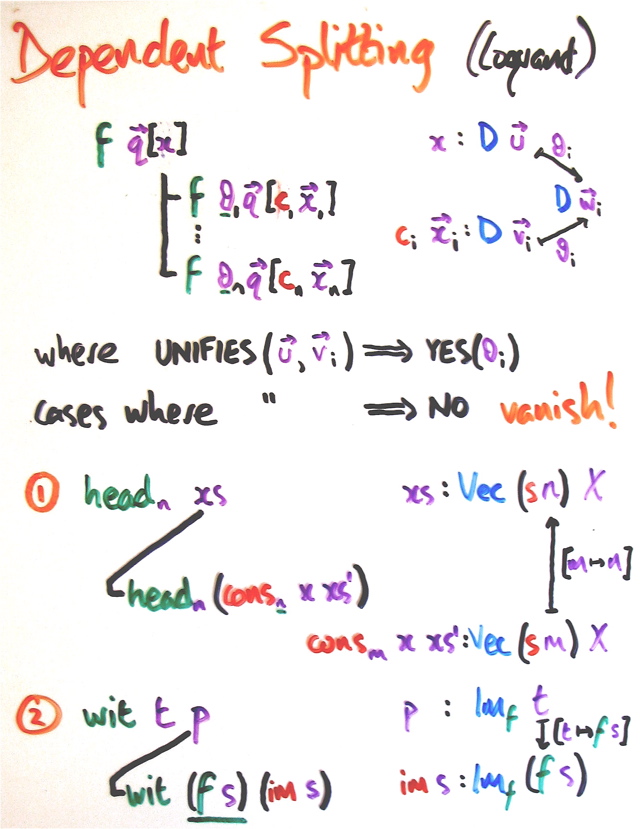 Dependent Splitting (Coquand)
f q⃗[x]
x : D u⃗ θᵢ
f θ₁q⃗[c₁ x⃗₁]
D w⃗ᵢ
⋮
cᵢ x⃗ᵢ : D v⃗ᵢ θᵢ
f θₙq⃗[cₙ x⃗ₙ]
where UNIFIES(u⃗, v⃗ᵢ) ⟹ YES(θᵢ)
cases where " ⟹ NO vanish!
① headₙ xs xs : Vec (sn) X
[m↦n]
headₙ (consₙ x xs')
consₘ x xs' : Vec (sm) X
② wit t p p : Imf t
[t↦f s]
wit (f s) (im s) im s : Imf (f s)